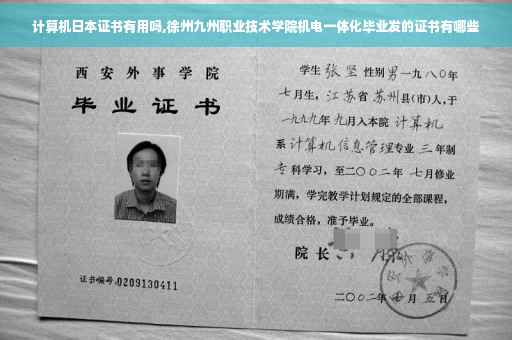 计算机日本证书有用吗,徐州九州职业技术学院机电一体化毕业发的证书有哪些
西安外事学院
毕业证书
证书编号:0209130411
学生张坚性别男一九八〇年
七月生,江苏省苏州县(市)人,于
一九九九年九月入本院计算机
系计算机信息管理专业三年制
专科学习,至二〇〇二年七月修业
期满,学完教学计划规定的全部课程,
成绩合格,准予毕业。
院长
二〇〇二年 月五日